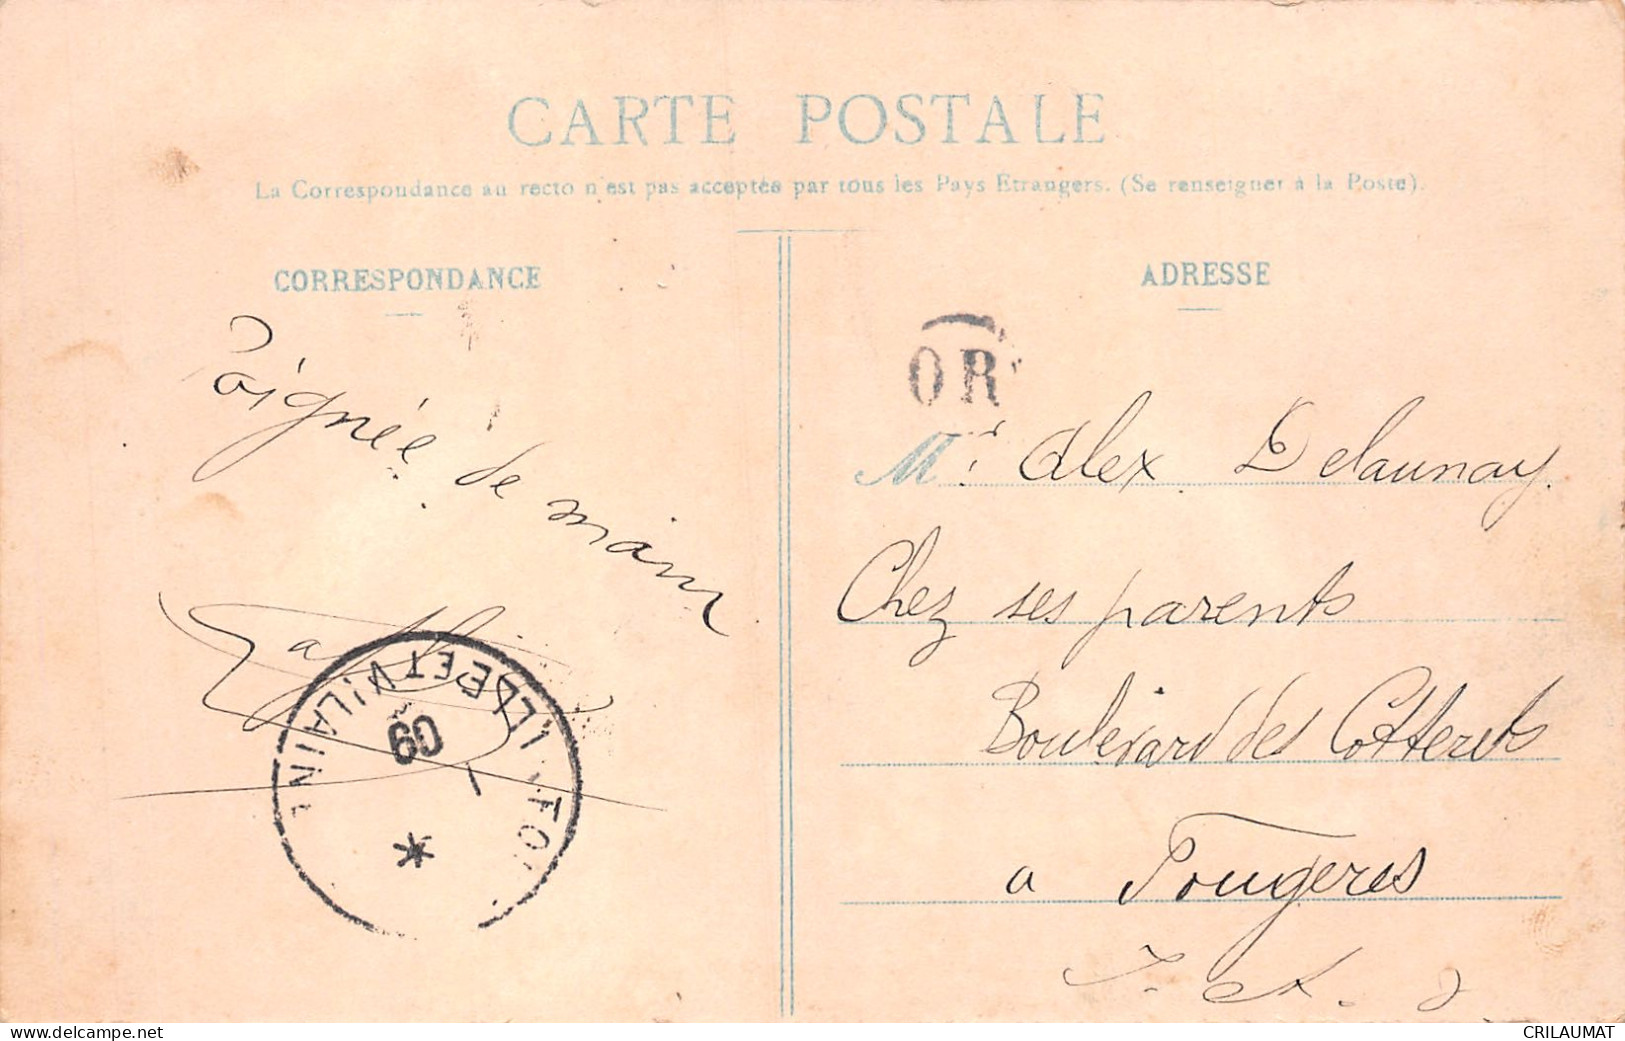 CARTE POSTALE
La Correspondance au recto n'est pas acceptée par tous les Pays Etrangers. (Se renseigner à la Poste).
CORRESPONDANCE
Poignée de main
ILLE ET VILAINE
09
*
ADRESSE
OR
Mr Alex Delaunay.
Chez ses parents
Boulevard des Cotterets
a Fougeres
I. et V.
CRILAUMAT